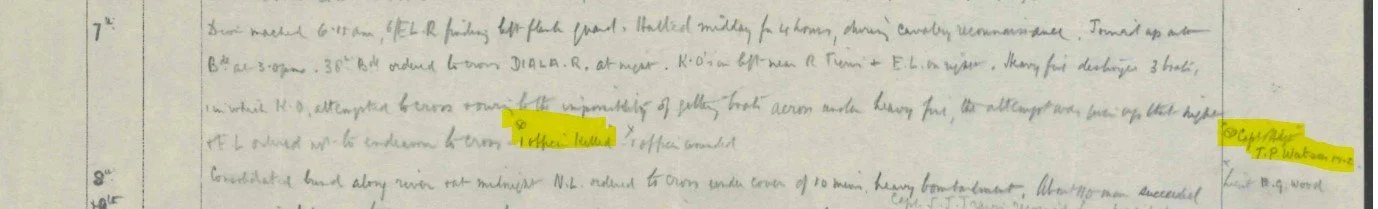 7th Divn marched 6.15 am, 6/E.L.R finding left flank guard. Halted midday for 4 hours, during cavalry reconnaissance. Joined up with
Bde at 3.0 pm. 38th Bde ordered to cross DIALA.R. at night. K.O's on left near R Tigris + E.L. on right. Heavy fire destroys 3 boats,
in which K.O. attempted to cross + owing to the impossibility of getting boats across under heavy fire, the attempt was given up that night
+ E L ordered not to endeavour to cross. ⊗ 1 officer killed x 1 officer wounded
⊗ Capt + Adjt
T.P. Watson M.C
8th Consolidated bund along river + at midnight N.L. ordered to cross under cover of 10 mins. heavy bombardment. About 110 men succeeded
x Lieut B.G. Wood